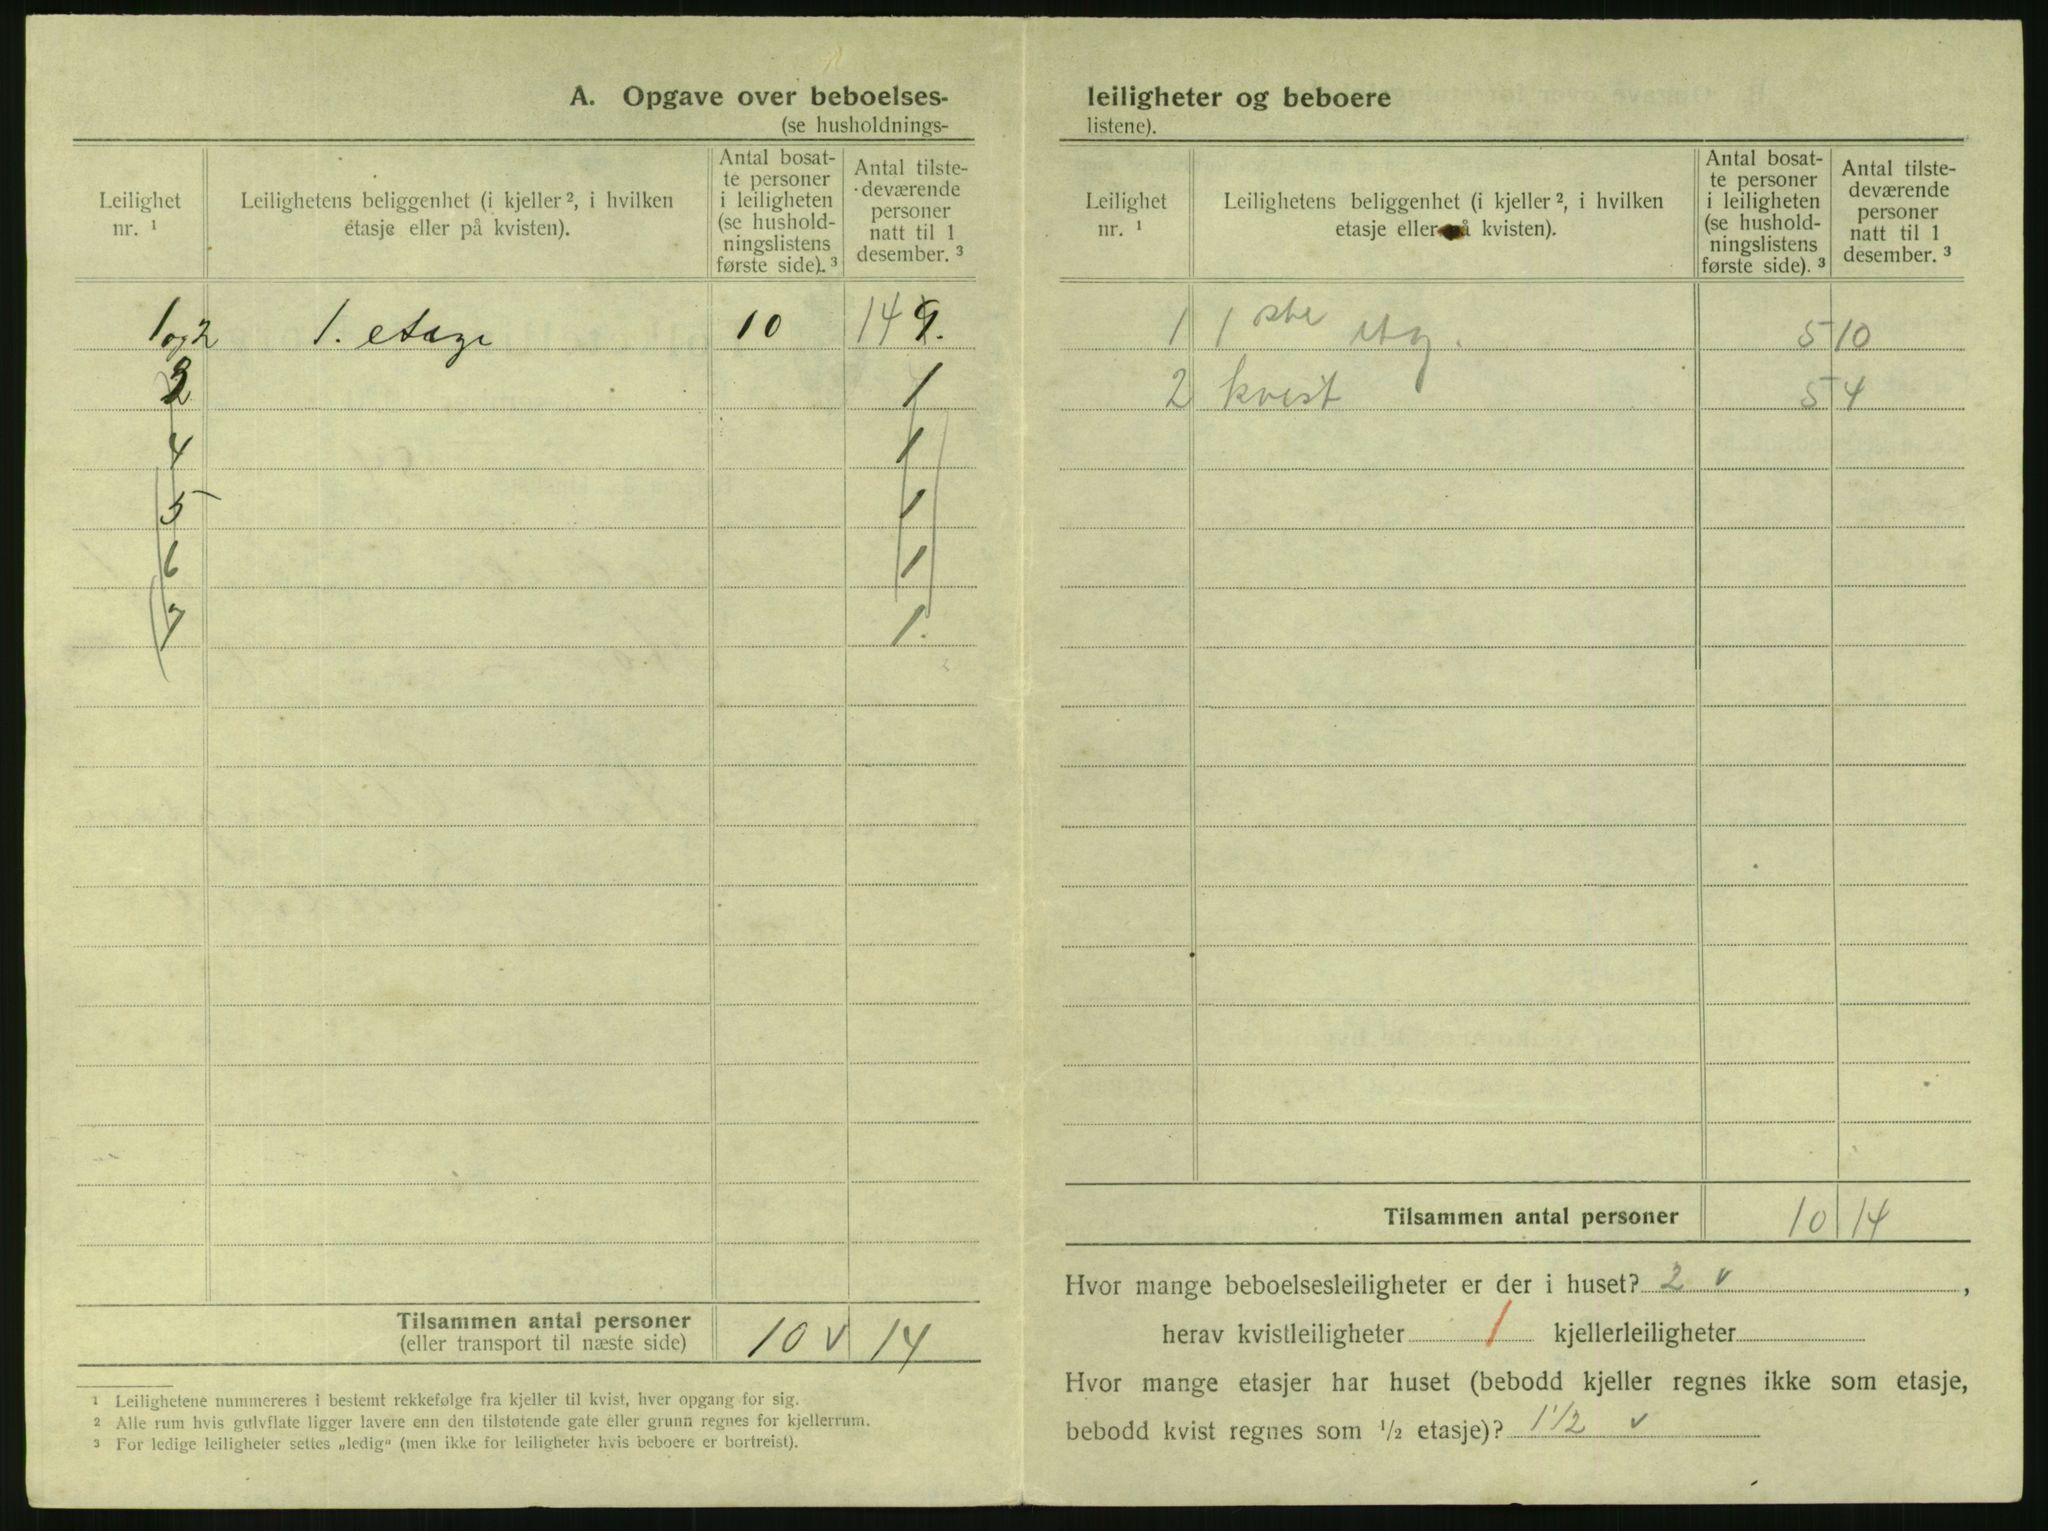 A. Opgave over beboelses-
(se husholdnings-
Leilighet nr. ¹
Leilighetens beliggenhet (i kjeller ², i hvilken etasje eller på kvisten).
Antal bosat-
te personer
i leiligheten
(se hushold-
ningslistens
første side). ³
Antal tilste-
deværende
personer
natt til 1
desember. ³
1 og 2 1. etage 10 14 9.
3 1
4 1
5 1
6 1
7 1.
Tilsammen antal personer 10 v 14
(eller transport til næste side)
¹ Leilighetene nummereres i bestemt rekkefølge fra kjeller til kvist, hver opgang for sig.
² Alle rum hvis gulvflate ligger lavere enn den tilstøtende gate eller grunn regnes for kjellerrum.
³ For ledige leiligheter settes „ledig“ (men ikke for leiligheter hvis beboere er bortreist).
leiligheter og beboere
listene).
Leilighet nr. ¹
Leilighetens beliggenhet (i kjeller ², i hvilken etasje eller på kvisten).
Antal bosat-
te personer
i leiligheten
(se hushold-
ningslistens
første side). ³
Antal tilste-
deværende
personer
natt til 1
desember. ³
1 1ste etg. 5 10
2 kvist 5 4
Tilsammen antal personer 10 14
Hvor mange beboelsesleiligheter er der i huset? 2 v ,
herav kvistleiligheter 1 kjellerleiligheter
Hvor mange etasjer har huset (bebodd kjeller regnes ikke som etasje,
bebodd kvist regnes som ½ etasje)? 1 1/2 v